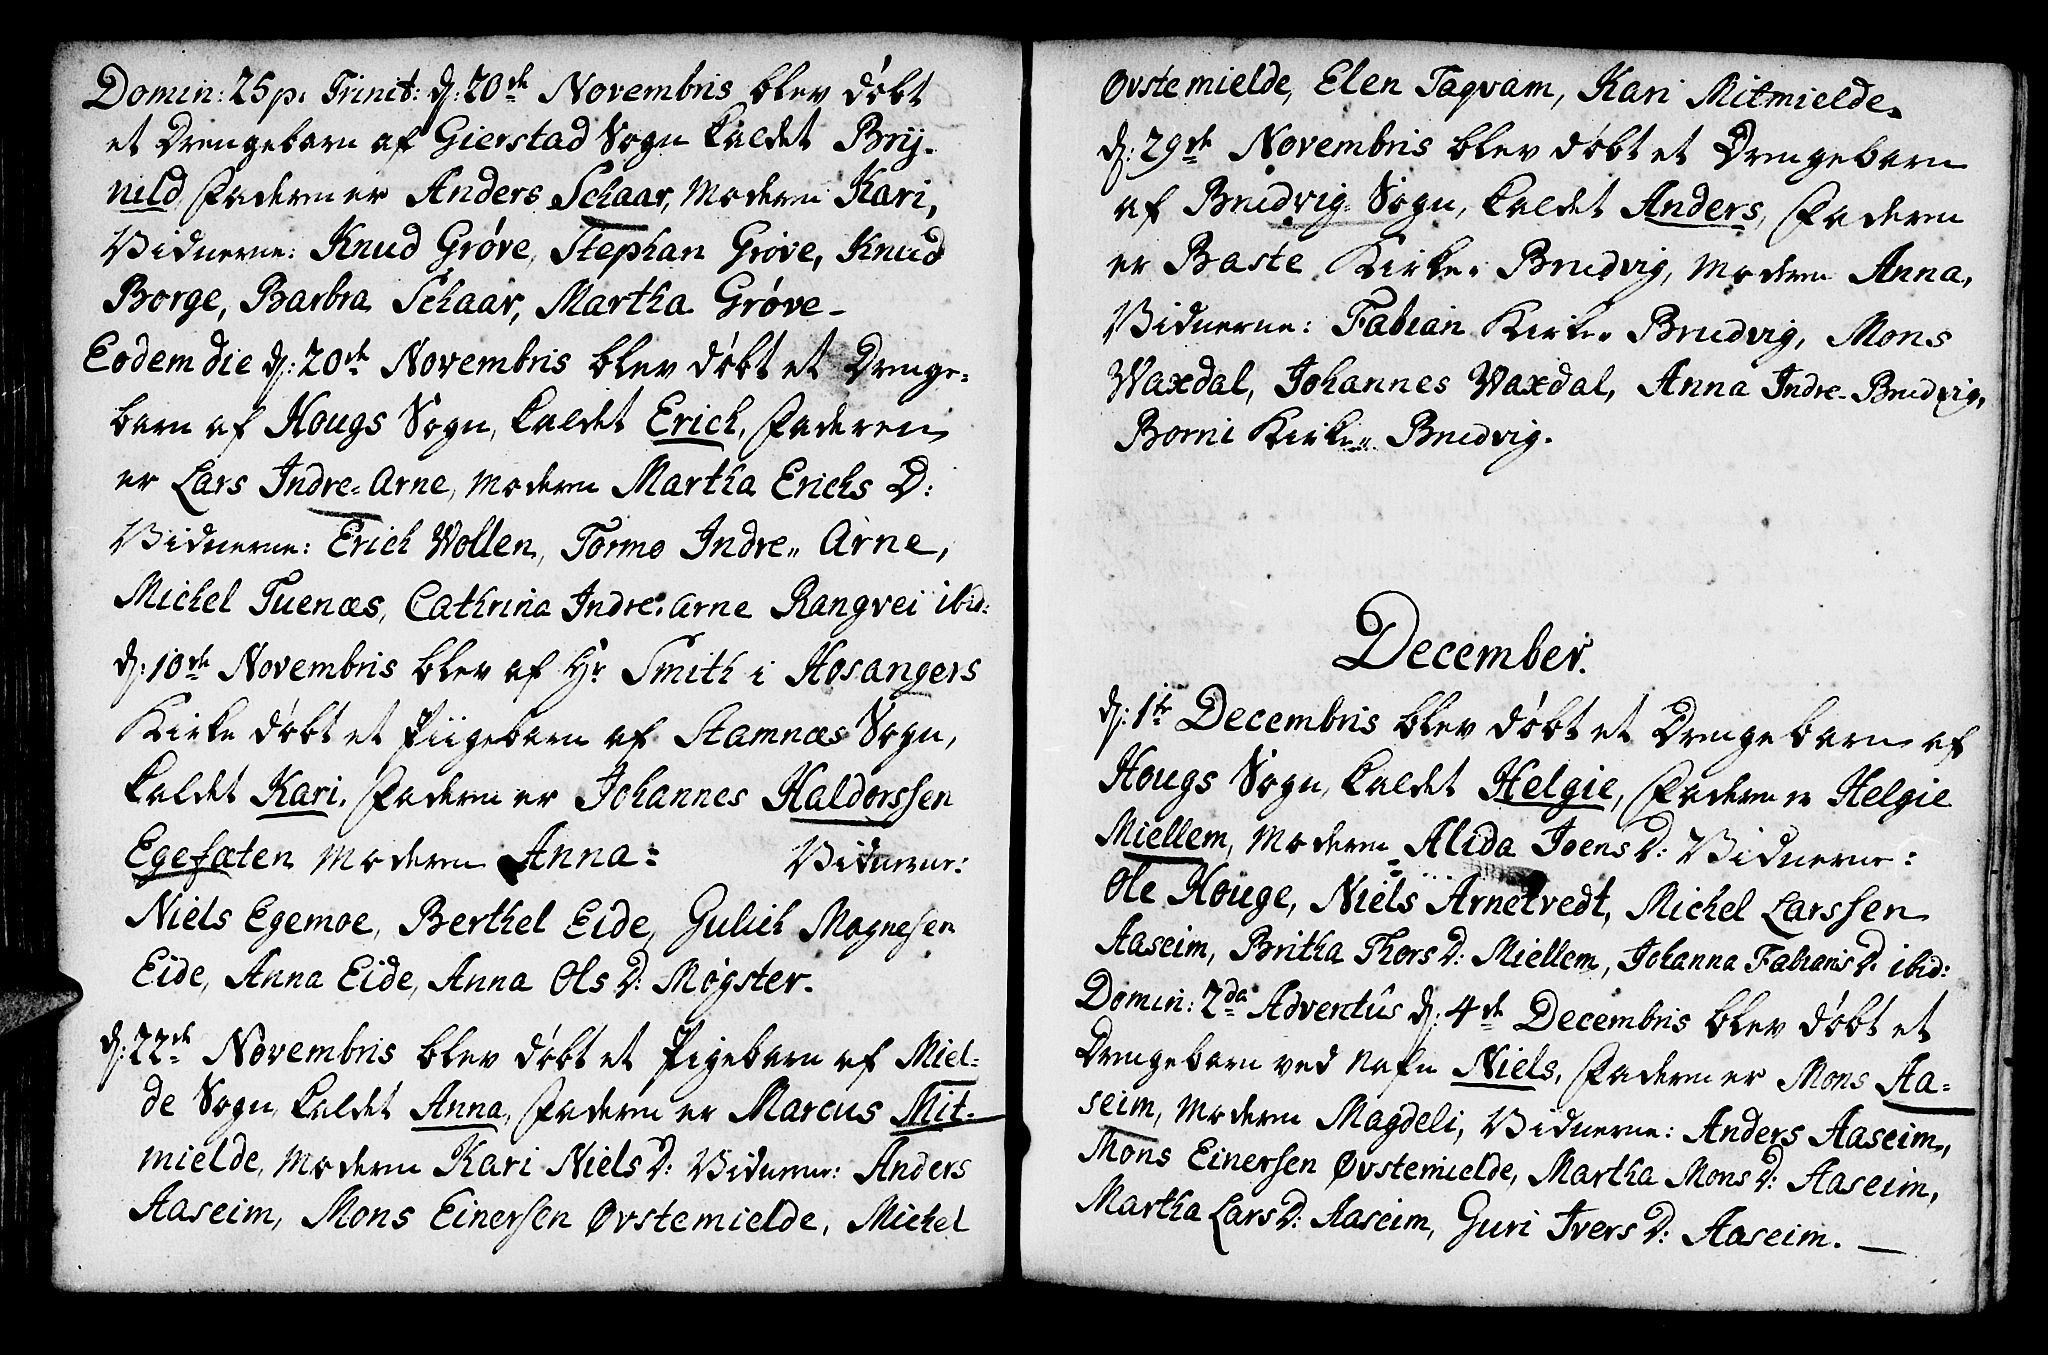 Domin: 25 p. Trinit: d: 20de Novembris blev döbt
et Drengebarn af Gierstad Sogn kaldet Brÿ-
nild, Faderen er Anders Schaar, Moderen Kari,
Vidnerne: Knud Grøve, Stephan Grøve, Knud
Borge, Barbra Schaar, Martha Grøve-
Eodem die d: 20de Novembris blev döbt et Drenge-
barn af Hougs Sogn, kaldet Erich, Faderen
er Lars Indre-Arne, Moderen Martha Erichs D:
Vidnerne: Erich Wollen, Tormo Indre-Arne,
Michel Tuenæs, Cathrina Indre-Arne Rangvei ibid:
d: 10de Novembris blev af Hr Smith i Hosangers
Kirke döbt et Piigebarn af Stamnæs Sogn,
kaldet Kari, Faderen er Johannes Haldorssen
Egefæten Moderen Anna: Vidnerne:
Niels Egemoe, Berthel Eide, Gulich Mognesen
Eide, Anna Eide, Anna Ols D: Møgster.
d: 22de Novembris blev döbt et Pigebarn af Miel-
de Sogn, kaldet Anna, Faderen er Marcus Mit-
mielde, Moderen Kari Niels D: Vidnerne: Anders
Aaseim, Mons Einersen Øvstemielde, Michel
Øvstemielde, Elen Taqvam, Kari Mitmielde.
d: 29de Novembris blev döbt et Drengebarn
af Brudvig Sogn, kaldet Anders, Faderen
er Baste Kirke-Brudvig, Moderen Anna,
Vidnerne: Fabian Kirke-Brudvig, Mons
Waxdal, Johannes Waxdal, Anna Indre-Brudvig,
Borni Kirke-Brudvig.
December.
d: 1te Decembris blev döbt et Drengebarn af
Hougs Sogn, kaldet Helgie, Faderen er Helgie
Miellem, Moderen Alida Joens D: Vidnerne:
Ole Houge, Niels Arnetvedt, Michel Larssen
Aaseim, Britha Thors D: Miellem, Johanna Fabians D: ibid:
Domin: 2da Adventûs d: 4de Decembris blev döbt et
Drengebarn ved Nafn Niels, Faderen er Mons Aa-
seim, Moderen Magdeli, Vidnerne: Anders Aaseim,
Mons Einersen Øvstemielde, Martha Mons D: Aaseim,
Martha Lars D: Aaseim, Guri Ivers D: Aaseim.